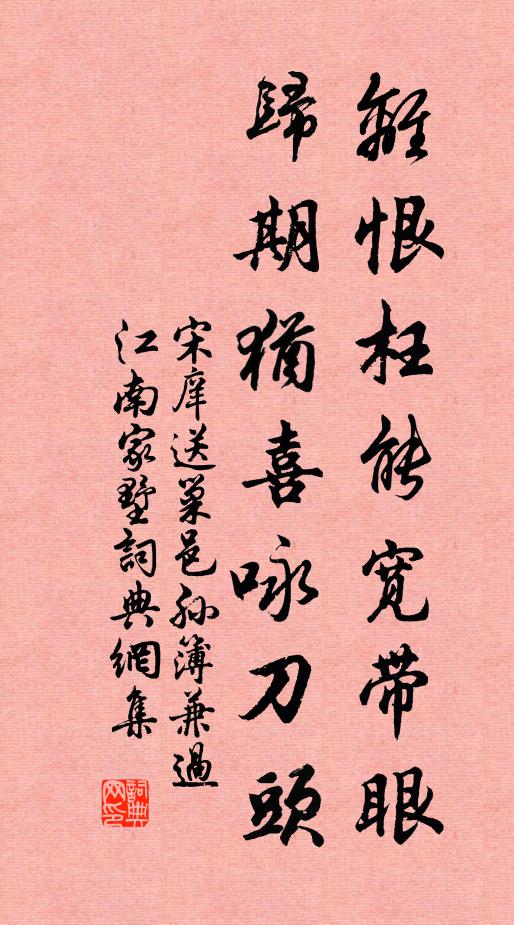 離恨枉能宽带眼
歸期猶喜咏刀頭
宋庠送巢邑孙簿兼過
江南家墅詞典網集
詞典網印